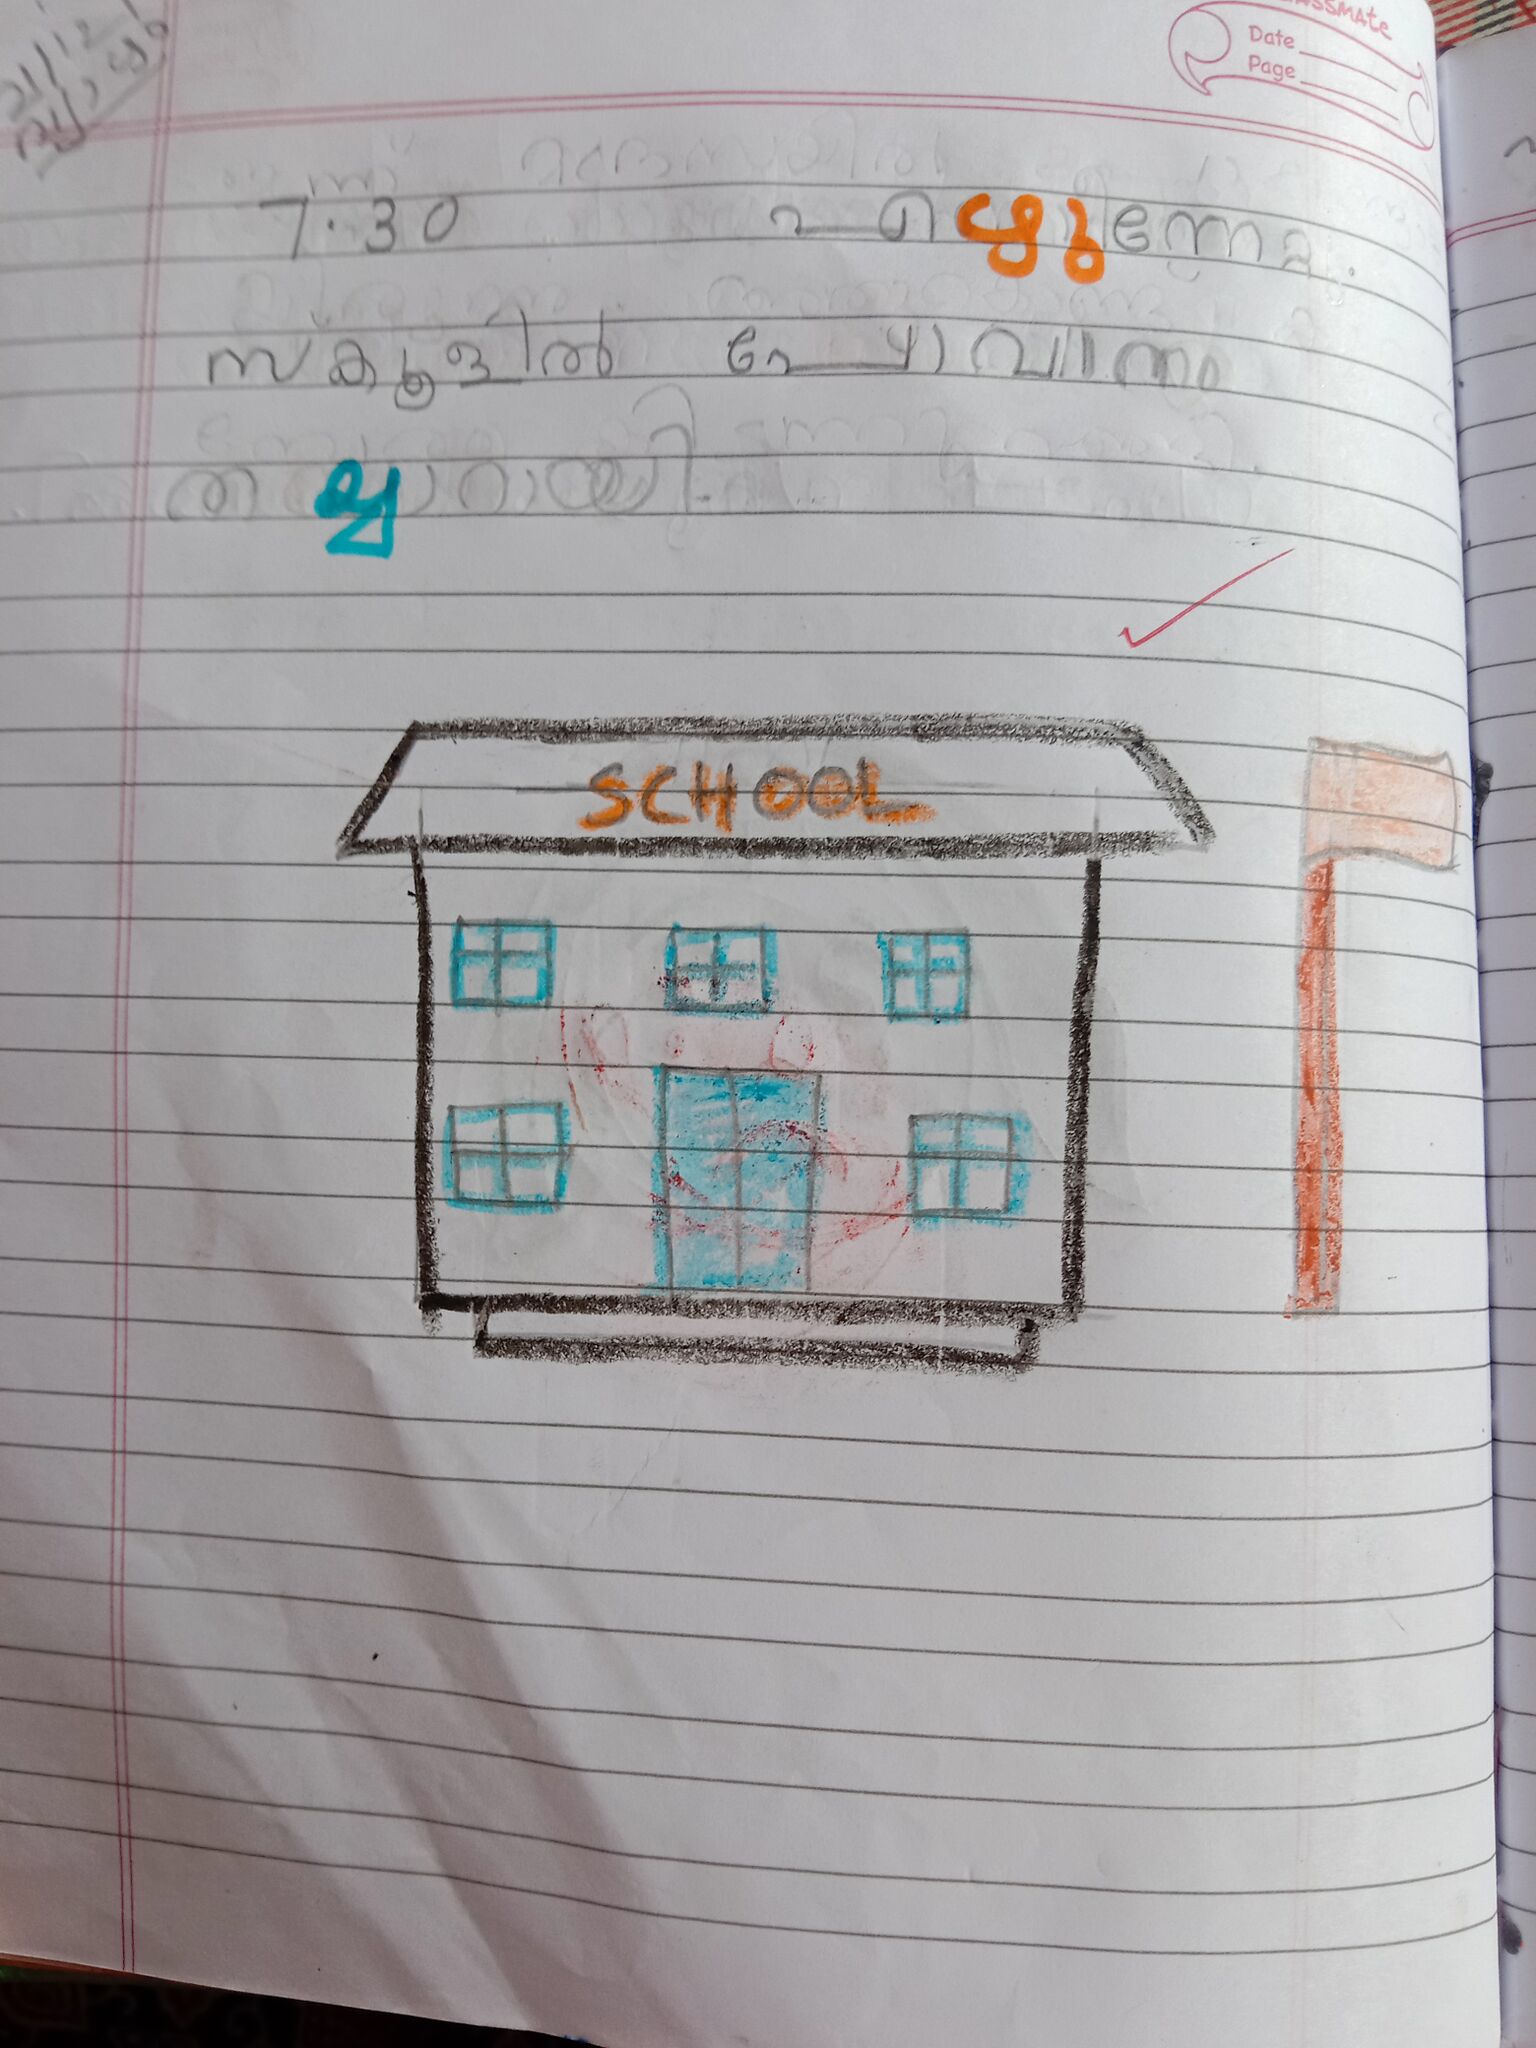 classmate
Date
Page
7.30 എഴുന്നേറ്റു.
സ്കൂളിൽ
തയ്യാറായി.
SCHOOL